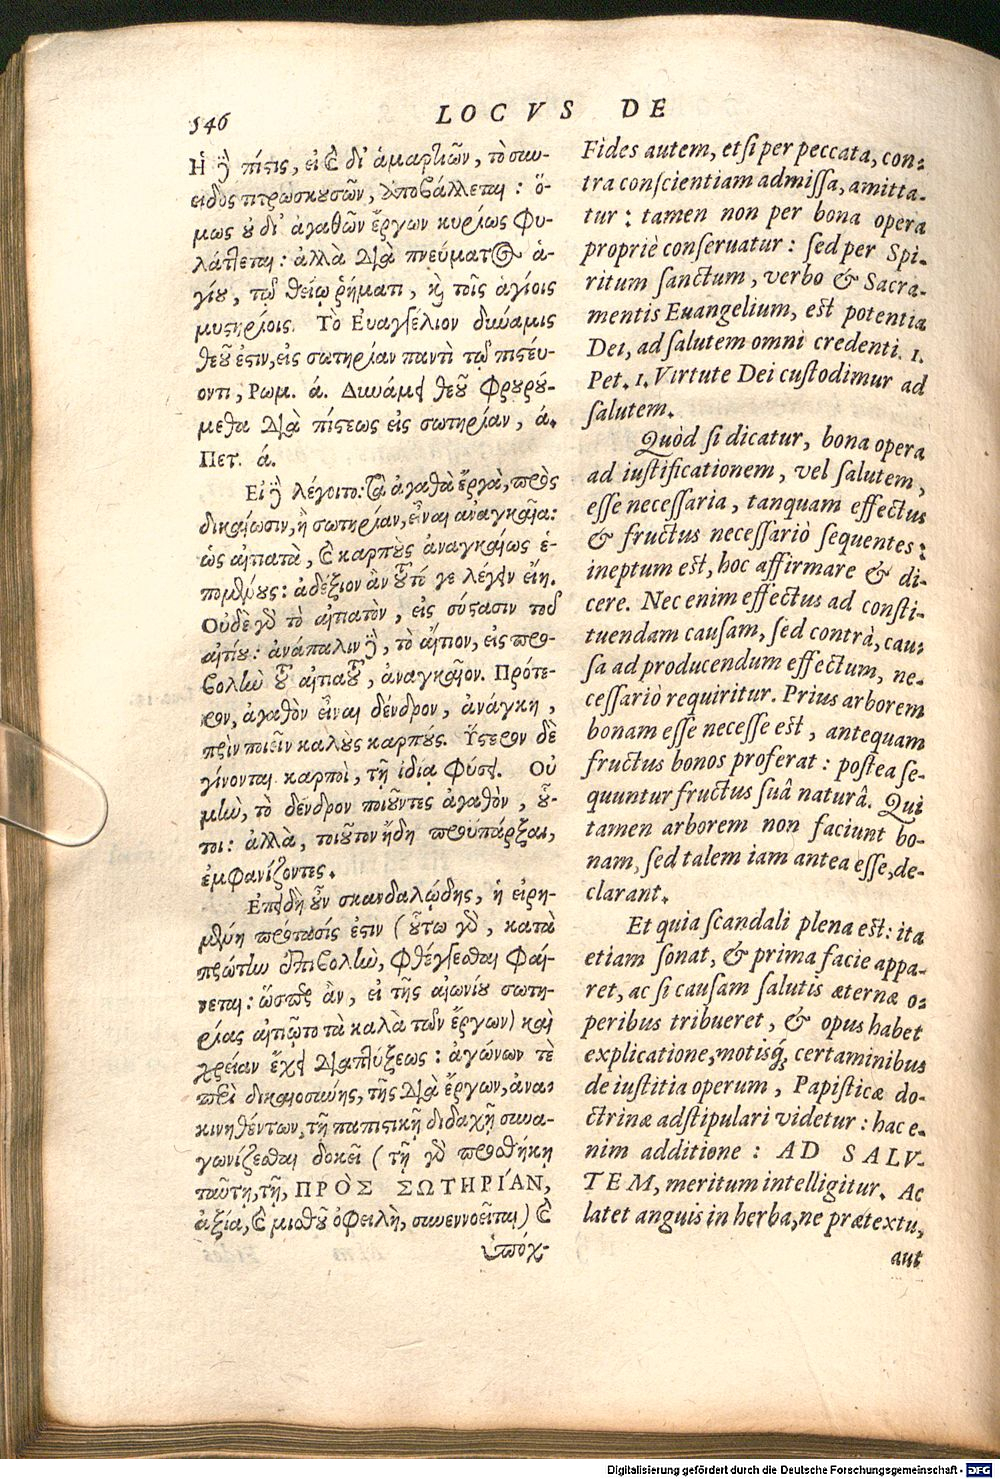 546
LOCVS DE
Ἡ ϳ πίστις, εἰ καὶ δι' ἁμαρτιῶν, τὸ συν-
ειδὸς πτρωσκουσῶν, ὑποβάλλεται: ὅ-
μως οὐ δι' ἀγαθῶν ἔργων κυρίως φυ-
λάττεται: ἀλλὰ διὰ πνεύματος ἁ-
γίου, τῷ θείῳ ῥήματι, καὶ τοῖς ἁγίοις
μυστηρίοις. Τὸ Ἐυαγγέλιον δύναμις
θεοῦ ἐστιν, εἰς σωτηρίαν παντὶ τῷ πιστεύ-
οντι, Ρωμ. ά. Δυνάμει θεοῦ φρουρού-
μεθα διὰ πίστεως εἰς σωτηρίαν, ά.
Πετ. ά.
Εἰ δὲ λέγοιτο: τὰ ἀγαθὰ ἔργα, πρὸς
δικαίωσιν, ἢ σωτηρίαν, εἶναι ἀναγκαῖα:
ὡς αἰτιατὰ, καὶ καρποὺς ἀναγκαίως ἑ-
πομένους: ἀδέξιον ἂν τοῦτό γε λέγειν εἴη.
Οὐδὲ γὰρ τὸ αἰτιατὸν, εἰς σύστασιν τοῦ
αἰτίου: ἀνάπαλιν δὲ, τὸ αἴτιον, εἰς προ-
βολὴν τοῦ αἰτιατοῦ, ἀναγκαῖον. Πρότε-
ρον, ἀγαθὸν εἶναι δένδρον, ἀνάγκη,
πρὶν ποιεῖν καλοὺς καρπούς. Ὕστερον δὲ
γίνονται καρποὶ, τῇ ἰδίᾳ φύσει. Οὐ
μὴν, τὸ δένδρον ποιοῦντες ἀγαθὸν, οὗ-
τοι: ἀλλὰ, τοιοῦτον ἤδη προϋπάρξαι,
ἐμφανίζοντες.
Ἐπειδὴ οὖν σκανδαλώδης, ἡ εἰρη-
μένη πρότασίς ἐστιν (οὕτω γὰρ, κατὰ
πρώτην ἐπιβολὴν, φθέγγεσθαι φαί-
νεται: ὥσπερ ἂν, εἰ τῆς αἰωνίου σωτη-
ρίας αἰτιῷτο τὰ καλὰ τῶν ἔργων) καὶ
χρείαν ἔχει διαπτύξεως: ἀγώνων τὲ
περὶ δικαιοσύνης, τῆς διὰ ἔργων, ἀνα-
κινηθέντων, τῇ παπιστικῇ διδαχῇ συνα-
γωνίζεσθαι δοκεῖ (τῇ γὰρ προσθήκῃ
ταύτῃ, τῇ, ΠΡῸΣ ΣΩΤΗΡΊΑΝ,
ἀξία, καὶ μισθοῦ ὀφειλὴ, συνεννοεῖται) καὶ
ὑπόχ-
Fides autem, etsi per peccata, con-
tra conscientiam admissa, amitta-
tur: tamen non per bona opera
propriè conseruatur: sed per Spi-
ritum sanctum, verbo & Sacra-
mentis Euangelium, est potentia
Dei, ad salutem omni credenti. 1.
Pet. 1. Virtute Dei custodimur ad
salutem.
Quòd si dicatur, bona opera
ad iustificationem, vel salutem,
esse necessaria, tanquam effectus
& fructus necessariò sequentes:
ineptum est, hoc affirmare & di-
cere. Nec enim effectus ad consti-
tuendam causam, sed contrà, cau-
sa ad producendum effectum, ne-
cessariò requiritur. Prius arborem
bonam esse necesse est, antequam
fructus bonos proferat: postea se-
quuntur fructus suâ naturâ. Qui
tamen arborem non faciunt bo-
nam, sed talem iam antea esse, de-
clarant.
Et quia scandali plena est: ita
etiam sonat, & prima facie appa-
ret, ac si causam salutis æternæ o-
peribus tribueret, & opus habet
explicatione, motisq́; certaminibus
de iustitia operum, Papisticæ do-
ctrinæ adstipulari videtur: hac e-
nim additione: AD SALV-
TEM, meritum intelligitur. Ac
latet anguis in herba, ne prætextu,
aut
Digitalisierung gefördert durch die Deutsche Forschungsgemeinschaft - DFG